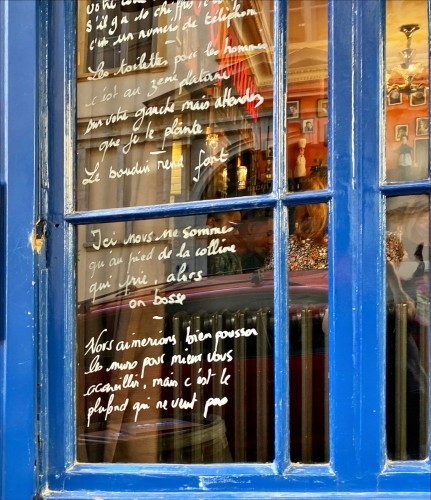 votre
S'il y a 10 chiffres
c'est un numéro de téléphone
Les toilettes pour les hommes
c'est au 3ème platane
sur votre gauche mais attendez
que je le plante
Le boudin rend fort
Ici nous ne sommes
qu'au pied de la colline
qui prie alors
on bosse
Nous aimerions bien pousser
les murs pour mieux vous
accueillir, mais c'est le
plafond qui ne veut pas